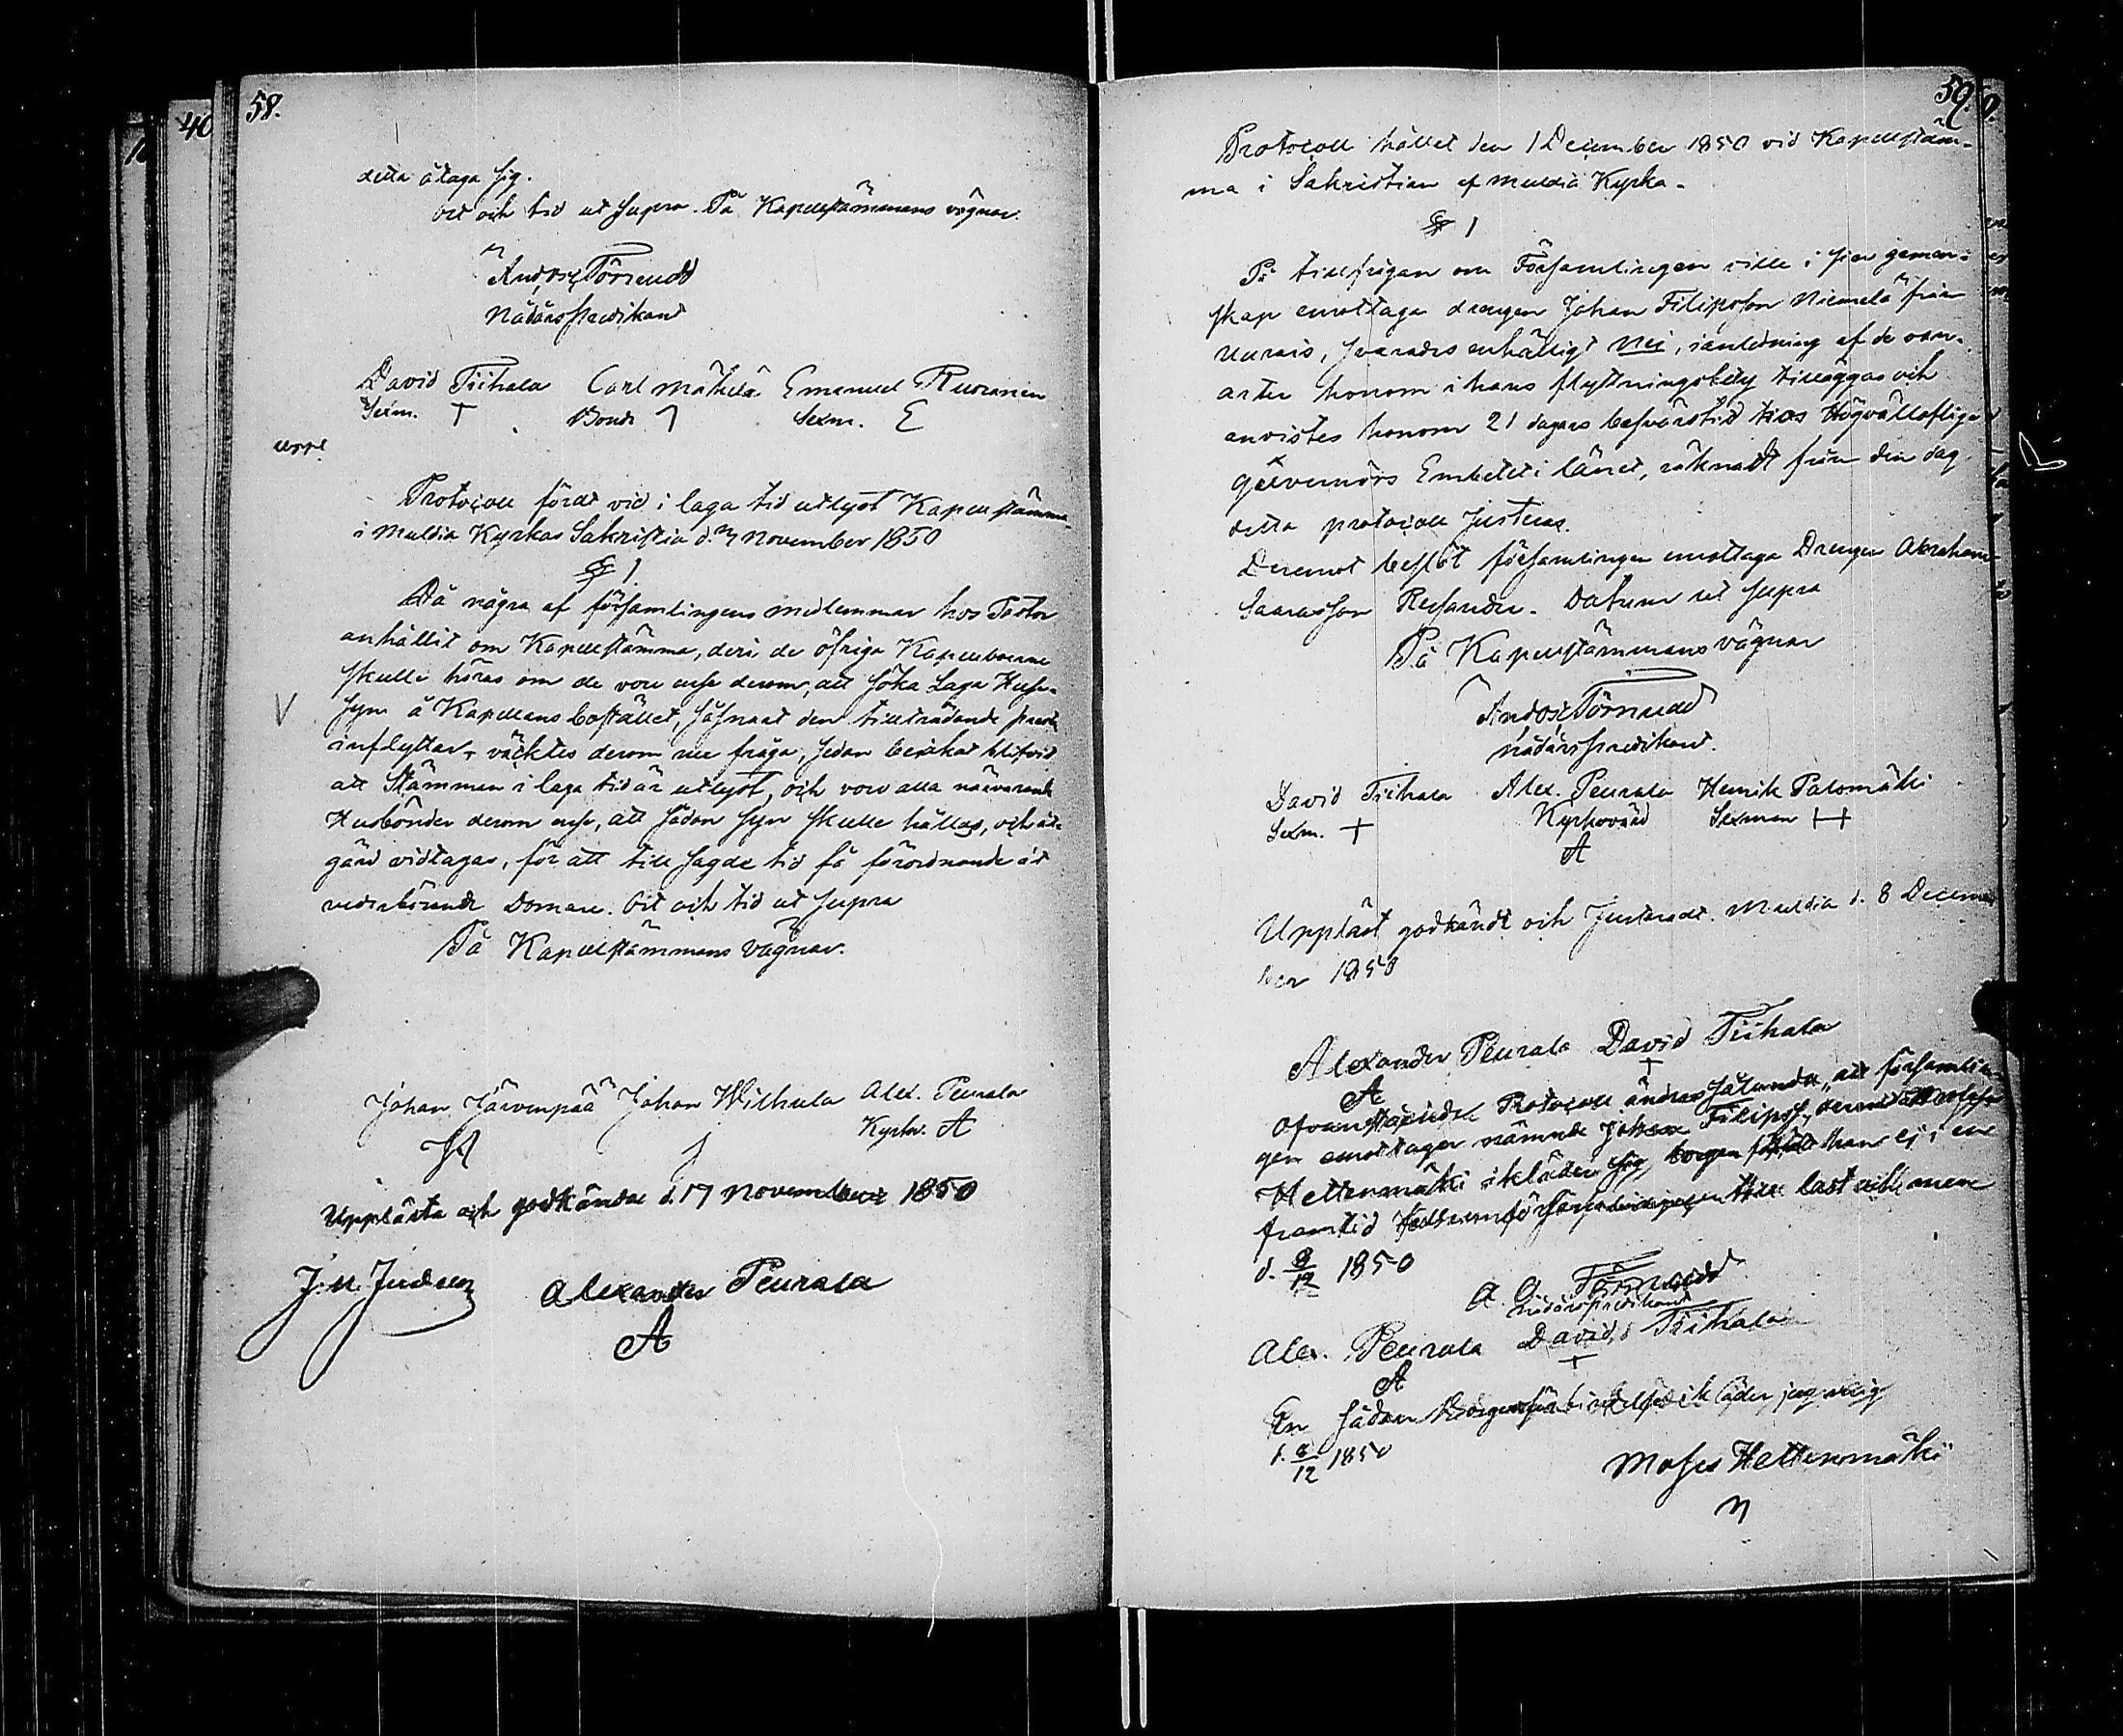 58.
detta åtaga sig.
Ort och tid ut supra. På Kapellstämmans vägnar
And. Törnudd
Nådårspredikant
David Tiihala Carl Mäkelä Emanuel Ruoranen
Sexm. Bonde Sexm. E
uppl.
Protocoll fördt vid i laga tid utlyst Kapellstämma
i Muldia Kyrkas Sakristia d. November 1850
§ 1.
Då några af församlingens medlemmar hos Pastor
anhållit om Kapellstämma, deri de öfriga Kapellboerne
skulle höras om de vore ense derom, att söka Laga Huse-
syn å Kapellansbostället, såsnart den tillträdande
inflyttar, väcktes derom nu fråga, sedan blifvit
att Stämman i laga tid är utlyst, och voro alla närvarande
Husbönder derom ense, att sådan syn skulle hållas, och åt-
gärd vidtagas, för att till sagde tid få förordnande åt
vederbörande Domare. Ort och tid ut supra
På Kapellstämmans vägnar.
Johan Järvenpää Johan Wilhula Alex. Peurala
Kyrkov. A
Upplästa och godkända d. 17 November 1850
Alexander Peurala
A
59.
Protocoll hållet den 1 December 1850 vid Kapellstäm-
ma i Sakristian af Muldia Kyrka.
§ 1
På tillfrågan om Församlingen ville i sin gemen-
skap emottaga drengen Johan Filipsson Niemelä från
Uurais, svarades enhälligt nej, i anledning af de oar-
arter honom i hans flyttningsbetyg tilläggas och
anvistes honom 21 dagars besvärstid hos Högvällofliga
Guvernörs Embetet i länet, räknadt från den dag
detta protocoll justeras.
Deremot beslöt församlingen emottaga Drengen Abraham
Saarasson Resander. Datum ut supra
På Kapellstämmans vägnar
And. Törnudd
nådårspredikant.
David Tiihala Alex. Peurala Henrik Palomäki
Sexm. + Kyrkovärd Sexman
A
Uppläst godkändt och Justeradt. Muldia d. 8 Decem-
ber 1850
Alexander Peurala David Tiihala
A +
Ofvanstående Protocoll ändras sålunda, att församlin-
gen emottager nämnde Johan Filipss.,
Hettenmäki ikläder sig borgen han ej i en
framtid församlingen till last
d. 8/12 1850
A. O. Törnudd
nådårspredikant
Alex. Peurala David Tiihala
A +
En sådan Borgensförbindelse ikläder jag mig
d. 8/12 1850
Moses Hettenmäki